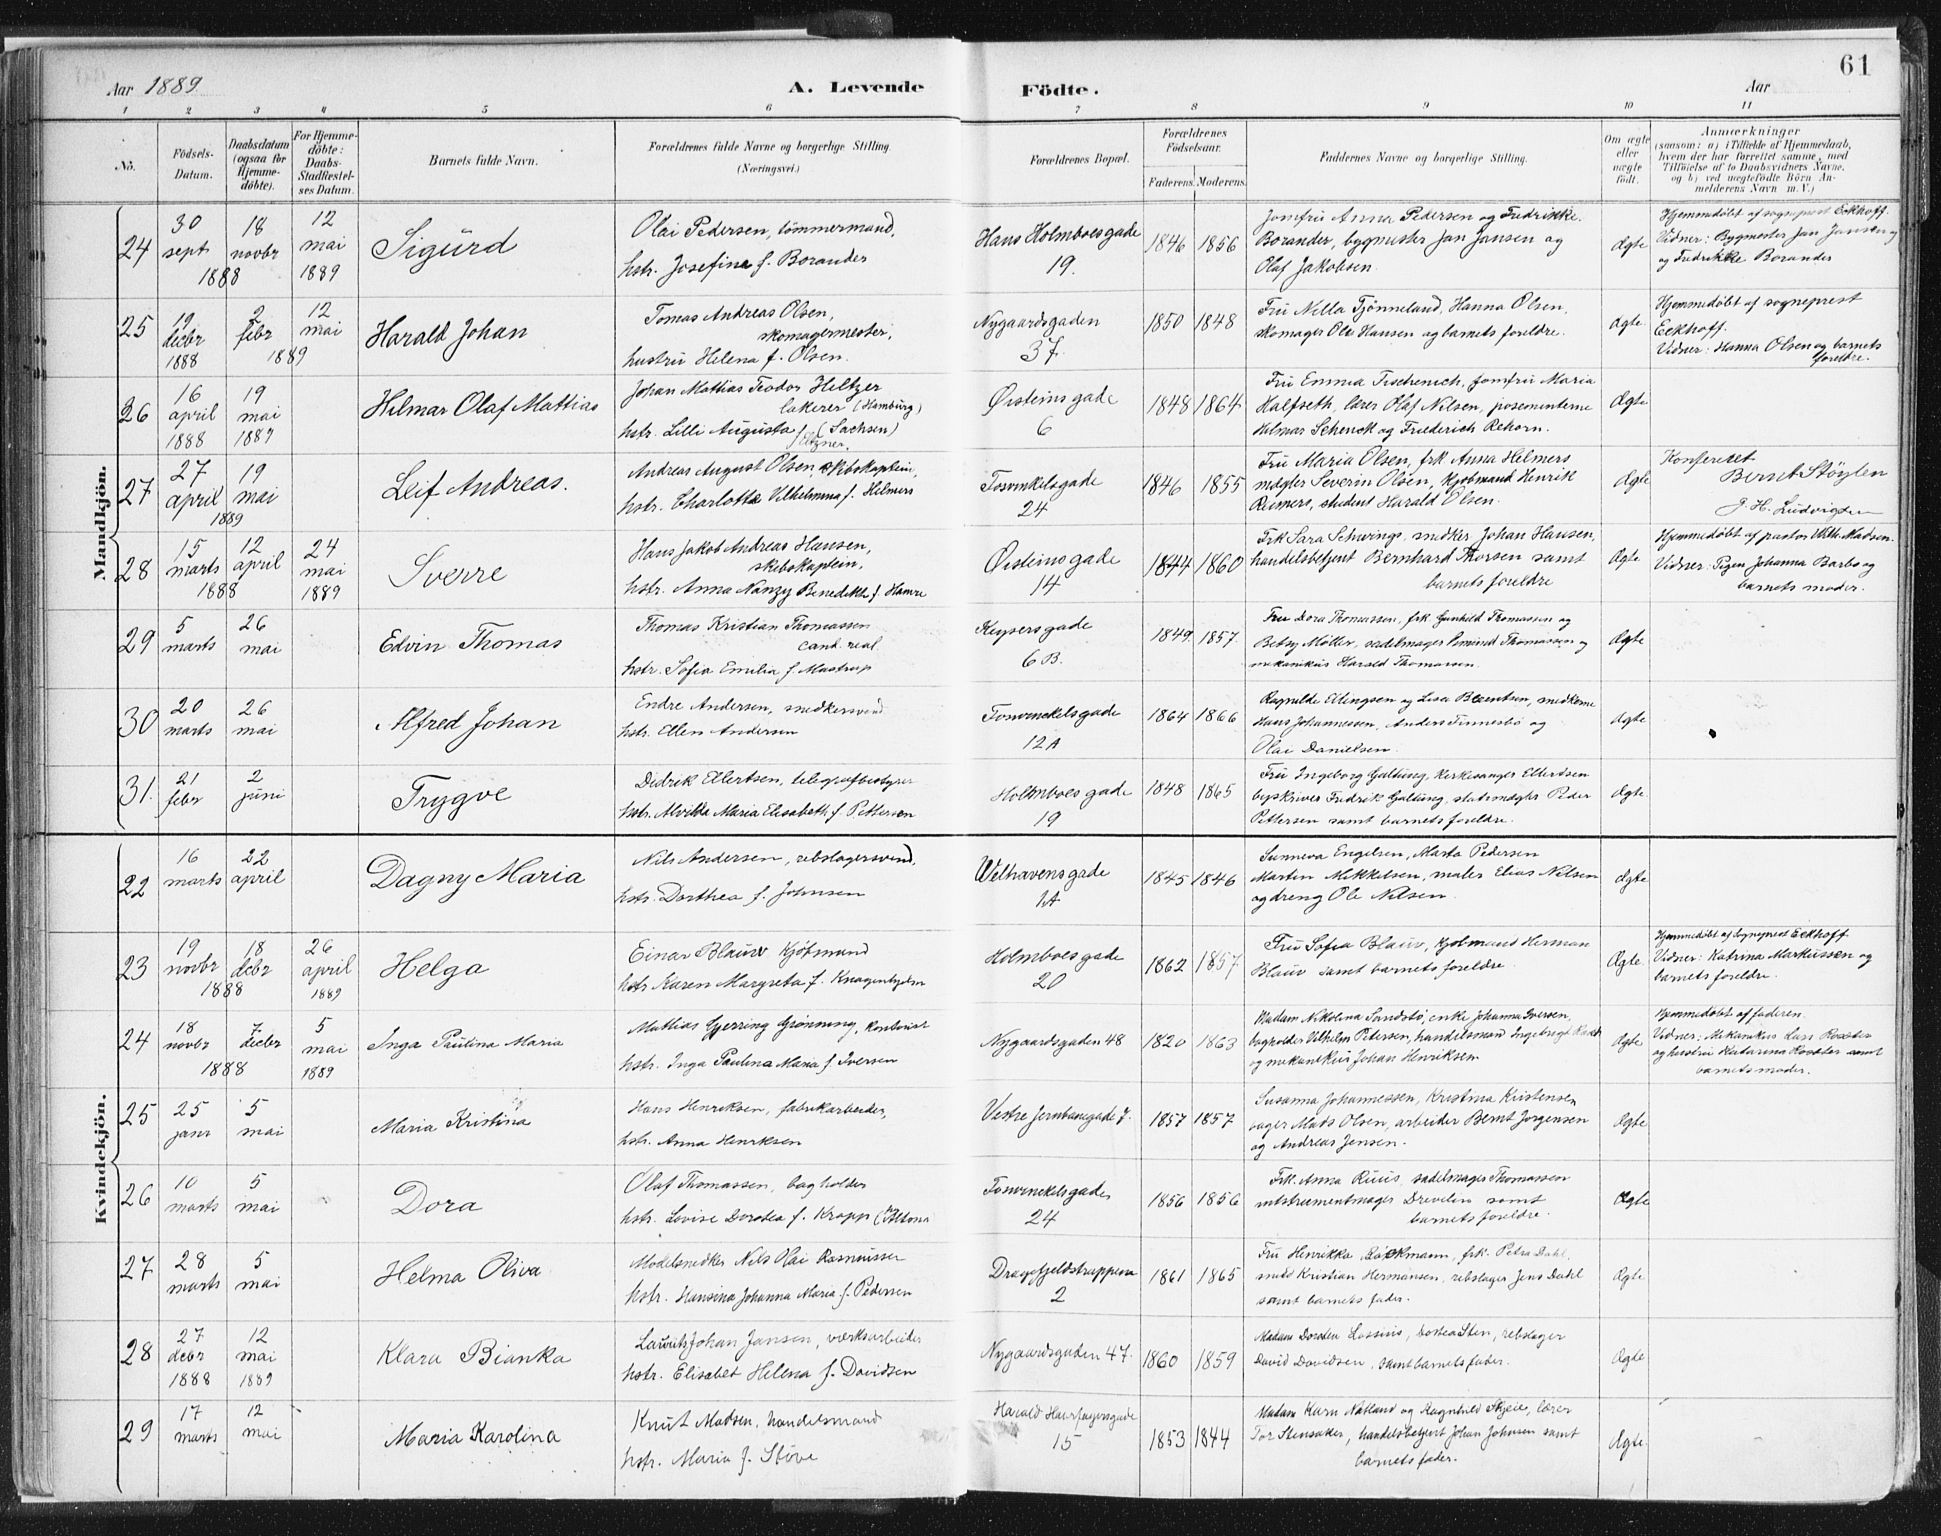 61
Aar 1889
A. Levende Födte.
Aar
1 2 3 4 5 6 7 8 9 10 11
No.
Födsels-Datum.
Daabsdatum (ogsaa for Hjemmedöbte).
For Hjemmedöbte: Daabs-Stadfæstelses Datum.
Barnets fulde Navn.
Forældrenes fulde Navne og borgerlige Stilling. (Næringsvei.)
Forældrenes Bopæl.
Forældrenes Födselsaar.
Faderens. Moderens.
Faddernes Navne og borgerlige Stilling.
Om ægte eller uægte födt.
Anmærkninger
(saasom: a) i Tilfælde af Hjemmedaab, hvem der har forrettet samme, med Tilföielse af to Daabsvidners Navne, og b) ved uægtefödte Börn Anmelderens Navn m. V.)
Mandkjön.
24 30 sept 1888 18 novbr 12 mai 1889 Sigurd
Olai Pedersen, tömmermand,
hstr. Josefine f. Borander
Hans Holmboesgade 19. 1846 1856
Jomfru Anna Pedersen og Fredrikke
Borander, bygmester Jan Jansen og
Olaf Jakobsen.
Ægte
Hjemmedöbt af sogneprest Eckhoff.
Vidner: Bygmester Jan Jansen
og Fredrikke Borander
25 19 decbr 1888 2 febr 1889 12 mai Harald Johan
Tomas Andreas Olsen,
skomagermester,
hustru Helena f. Olsen.
Nygaardsgaden 37. 1850 1848
Fru Nilla Tjönneland, Hanna Olsen,
skomager Ole Hansen og barnets foreldre.
Ægte
Hjemmedöbt af sogneprest
Eckhoff.
Vidner: Hanna Olsen og barnets
foreldre.
26 16 april 1888 19 mai 1889 Hilmar Olaf Mattias
Johan Mattias Teodor Heltzer
lakerer (Hamburg)
hstr. Lilli Augusta f. (Sachsen)
Øisteinsgade 6 1848 1864
Fru Emma Tischenich, jomfru Maria
Halfseth, lærer Olaf Nilsen, posementerne
Hilmar Schenck og Friederich Rehorn.
Ægte
27 27 april 1889 19 mai Leif Andreas.
Andreas August Olsen skibskaptein,
hstr. Charlotte Vilhelmina f. Helmers
Fosvinkelsgade 24 1846 1855
Fru Maria Olsen, frk Anna Helmers
mægler Severin Olsen, kjöbmand Henrik
Reimers, student Harald Olsen.
Ægte
Konfereret
Bernt Stöylen
J. H. Ludvigsen
28 15 marts 1888 12 april 24 mai 1889 Sverre
Hans Jakob Andreas Hansen,
skibskaptein,
hstr. Anna Nanzy Benedikte f. Hamre
Øisteinsgade 14 1844 1860
Frk Sara Schwings, snedker Johan Hansen,
handelsbetjent Bernhard Thorsen samt
barnets foreldre
Ægte
Hjemmedöbt af pastor Wilh. Madsen.
Vidner: Pigen Johanna Barbo og
barnets moder.
29 5 marts 26 mai Edvin Thomas
Thomas Kristian Thomassen
cand. real.
hstr. Sofia Emilia f. Mastrup
Keysersgade 6 B. 1849 1857
Fru Dora Thomassen, frk Gunhild Thomassen og
Betsy Möller, sadelmager Thomassen og
mekanikus Harald Thomassen.
Ægte
30 20 marts 26 mai Alfred Johan
Endre Andersen, snedkersvend
hstr. Ellen Andersen
Fosvinckelsgade 12 A 1864 1866
Ragnilde Ellingsen og Lisa Berntsen, snedkerne
Hans Johannessen, Anders Finnesbö og
Olai Danielsen.
Ægte
31. 21 febr 2 juni Trygve
Didrik Ellertsen, telegrafbestyrer
hstr. Alvilda Maria Elisabeth f. Pettersen
Holmboesgade 19 1848 1865
Fru Ingeborg Galtung, kirkesanger Ellertsen
byskriver Fredrik Galtung, skibsmægler Peder
Pettersen samt barnets foreldre.
Ægte
Kvindekjön.
22 16 marts 22 april Dagny Maria
Nils Andersen, rebslagersvend,
hstr. Dorthea f. Johnsen
Welhavensgade 1A 1845 1846
Sunneva Engelsen, Marta Pedersen
Martin Mikkelsen, maler Elias Nilsen
og dreng Ole Nilsen.
Ægte
23 19 novbr 1888 18 decbr 26 april 1889 Helga
Einar Blauw Kjöbmand
hstr Karen Margreta f. Knagenhjelm
Holmboesgade 20 1862 1857
Fru Sofia Blauw, kjöbmand Herman
Blauw samt barnets foreldre.
Ægte.
Hjemmedöbt af Sogneprest Eckhoff
Vidner: Katrina Markussen og
barnets foreldre.
24 18 novbr 1888 7 decbr 5 mai 1889 Inga Paulina Maria
Mattias Gjerring Grönning, kontorist
hstr. Inga Paulina Maria f. Iversen
Nygaardsgaden 48 1820 1863
Madam Nikolina Sandsbö, enke Johanna Iversen,
bogholder Vilhelm Petersen, handelsmand Ingebrigt
og mekanikus Johan Henriksen
Ægte
Hjemmedöbt af faderen.
Vidner: Mekanikus Lars Roster
og hustru Katarina Roster samt
barnets moder.
25 25 janr 5 mai Maria Kristina
Hans Henriksen, fabrikarbeider,
hstr. Anna Henriksen
Vestre Jernbanegade 7. 1857 1857
Susanna Johannessen, Kristina Kristensen
bager Mads Olsen, arbeider Bernt Jorgensen
og Andreas Jensen.
Ægte
26 10 marts 5 mai Dora
Olaf Thomassen, bogholder
hstr. Lovise Dorotea f. Kropp (Altona
Fosvinckelsgade 24 1856 1856
Frk. Anna Ruus, sadelmager Thomassen
intstrumentmager Drevelin samt
barnets foreldre.
Ægte
27 28 marts 5 mai Helma Oliva
Modelsnedker Nils Olai Rasmussen
hstr. Hansina Johanna Maria f. Pedersen
Dragefjeldstrappena 2 1861 1865
Fru Henrikka Böckmann, frk. Petra Dahl,
smed Kristian Hermansen, rebslager Jens Dahl
samt barnets fader.
Ægte
28 27 decbr 1888 12 mai 1889 Klara Bianka
Lauritz Johan Jansen, værksarbeider
hstr. Elisabet Helena f. Davidsen
Nygaardsgaden 47. 1860 1859
Madam Dorotea Lossius, Dortea Sten, rebslager
David Davidsen, samt barnets fader.
Ægte
29 17 marts 12 mai Maria Karolina
Knut Madsen, handelsmand
hstr. Maria f. Stöve
Harald Haarfagersgade 15 1853 1844
Madam Karn Natland og Ragnhild Skjeie, lærer
Tor Stensaker, handelsbetjent Johan Johnsen samt
barnets fader.
Ægte.